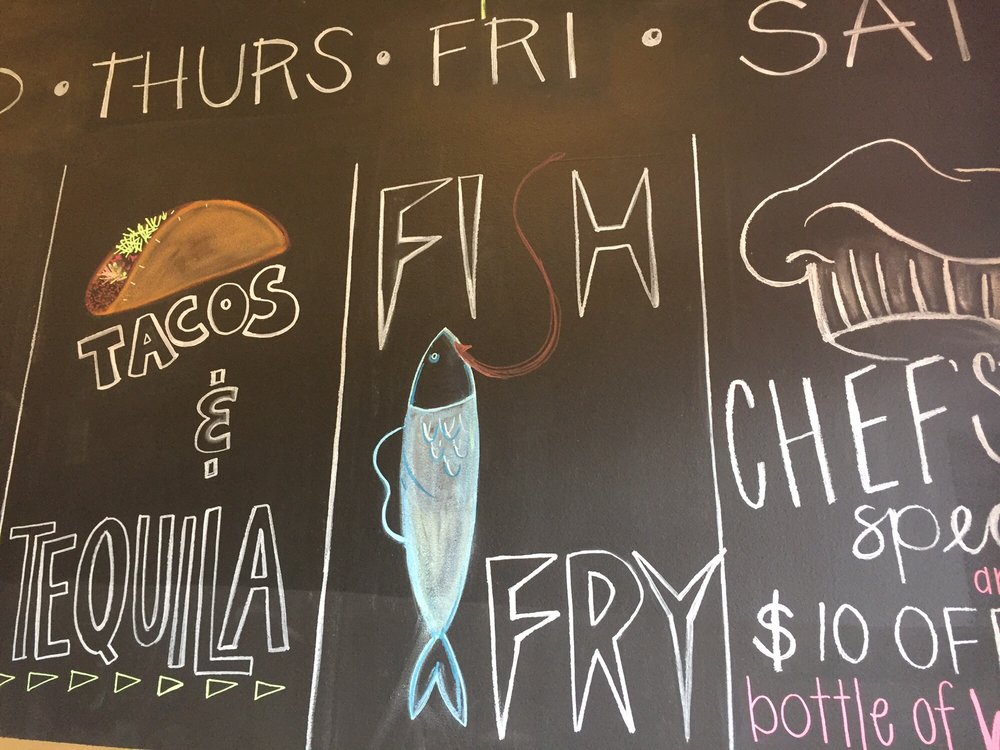 THURS • FRI • SAT
TACOS
&
TEQUILA
FISH
FRY
CHEF'S
$10 OFF
bottle of